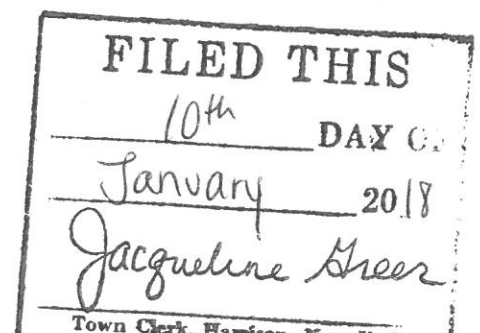 FILED THIS
10th DAY
January 2018
Jacqueline Greer
Town Clerk, Harrison, New